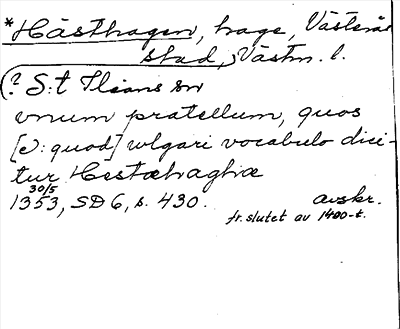 *Hästhagen, hage, Västerås
stad, Västm. l.
(? S:t Ilians sn
vnum pratellum, quos
[ɔ: quod] wlgari vocabulo dici-
tur Hestæhaghæ
30/5
1353, SD 6, s. 430. avskr.
fr. slutet av 1400-t.